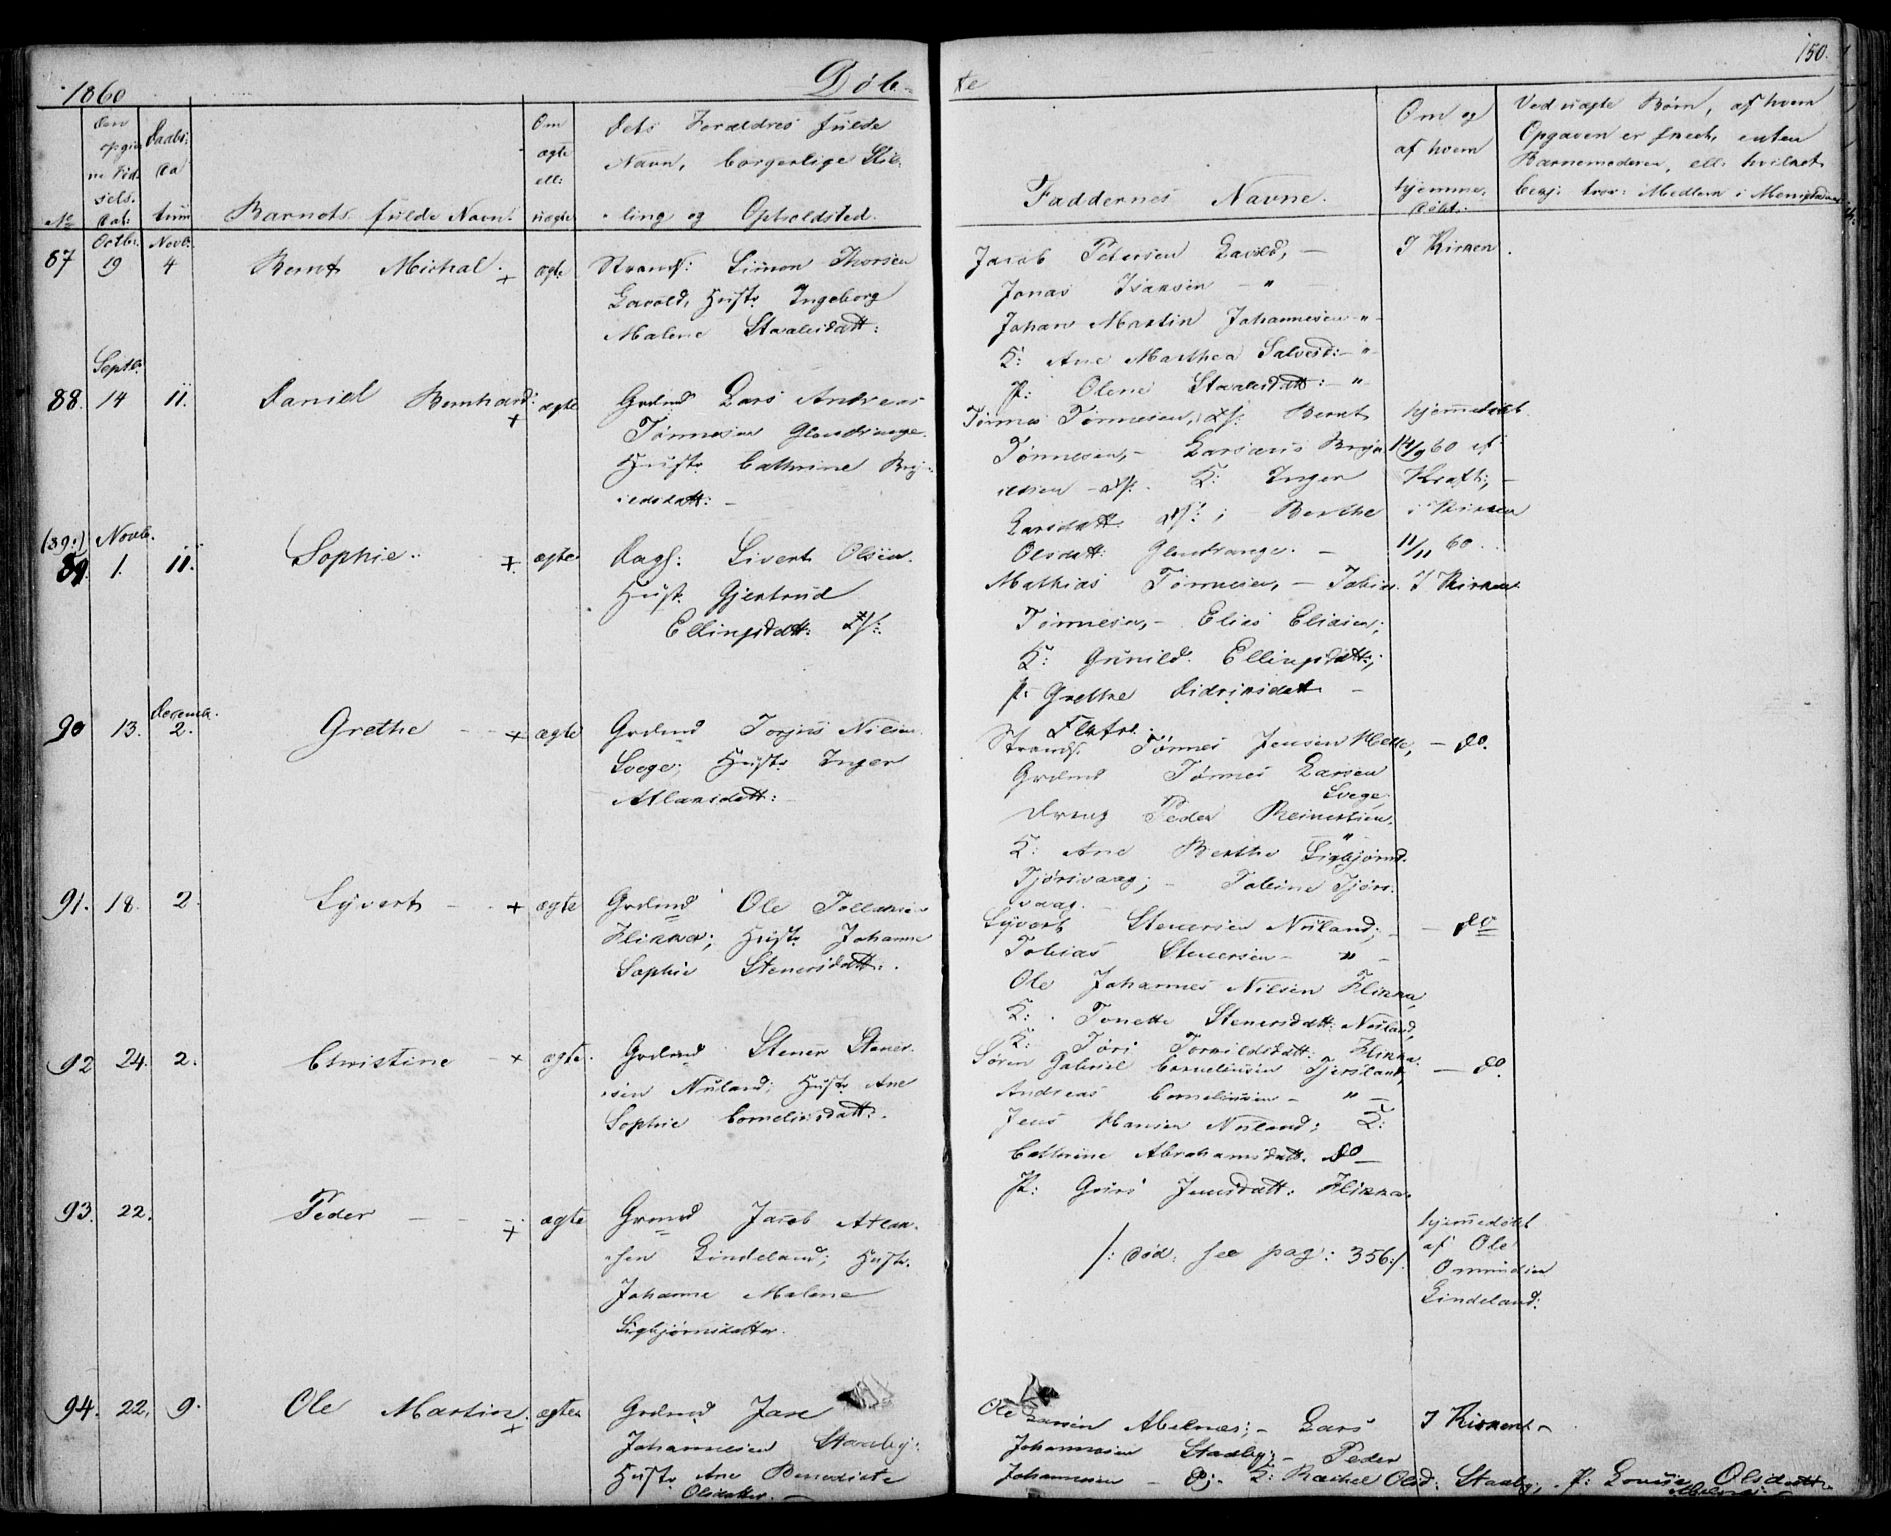 1860
Døb-
te
150.
No
Den opgivne Fødselsdat:
Daabs: Datum
Barnets fulde Navn.
Om ægte ell: uægte
Dets Foraldres fulde
Navn, borgerlige Stil-
ling og Opholdsted.
Faddernes Navne.
Om og
af hvem
hjemme-
døbt:
Ved uægte Børn, af hvem
Opgaven er skeet, enten
Barnemoderen, ell: hvilket
Octbr. Novb.
87 19 4 Bernt Michal + ægte
Strands: Simon Thorsen
Lavold, Hustr Ingeborg
Malene Staalesdatt:
Jacob Petersen Lavold, —
Jonas Isaksen — "
Johan Martin Johannesen "
K: Ane Marthea Salvesd: — "
P: Olene Staalesdatt: — "
I Kirken.
Septbr.
88. 14 11. Daniel Bernhard: + ægte
Grdmd Lars Andreas
Tønnesen Glendrange.
Hustr Cathrine Brij-
ildsdatt: —
Tønnes Tønnesen, ds: Bernt
Tønnesen, — Larsæus Brija
ildsen — ds: K: Inger
Larsdatt. ds: ; — Berthe
Olsdatt: Glendrange. —
hjemmedøbt
14/9 60 af
Kraft:, —
i Kirken
11/11 60.
(39:) Novb.
89. 1. 11. Sophie. + ægte
Dags: Sivert Olsen.
Hust. Gjertrud
Ellingsdatt: Fl:
Mathias Tønnesen, — Tobias
Tønnesen, — Elias Eliasen;
K: Gunild Ellingsdatt:;
P: Grethe Didriksdatt —
I Kirken.
Decemb.
90 13. 2. Grethe — + ægte
Grdmd Torjus Nilsen
Svege; Hustr Inger
Atlaksdatt:
Strands. Tønnes Jensen Helle,
Grdmd Tønnes Larsen
Svege,
Dreng Peder Reinertsen.
"
K: Ane Berthe Sigbjørnsd.
Tjørsvaag; — Tobine Tjørs-
vaag. —
— do.
91. 18. 2. Syvert — + ægte
Grdmd Ole Tollaksen
Flikka; Hustr Johanne
Sophie Stenersdatt:.
Syvert Stenersen Nuland; —
Tobias Stenersen — " —
Ole Johannes Nilsen Flikka,
K: Tonette Stenersdatt: Nuland,
K: Tøri Torkildsdatt: Flikka.
— do
92 24. 2. Christine — + ægte.
Grdmd Stener Stener-
sen Nuland; Hustr Ane
Sophie Corneliusdatt:.
Søren Gabriel Corneliusen Tjersland,
Andreas Corneliusen — " —
Jens Hansen Nuland; K:
Cathrine Abrahamsdatt. do —
P: Guro Jensdatt: Flikka.
— do.
93. 22. Peder — — — + ægte
Grdmd Jacob Atlak-
sen Lindeland; Hustr.
Johanne Malene
Sigbjørnsdatter.
/: død: see pag: 356:/.
hjemmedøbt
af Ole
Omundsen
Lindeland.
94. 22. 9. Ole Martin. + ægte
Grdmd Jare
Johannesen Stadby:
Hustr Ane Benedicte
Olsdatter. —
Ole Larsen Abelnæs; — Lars
Johannesen Stadby; — Peder
Johannesen — K: Rachel Olsd: Stadby, P: Lovise Olsdatt
Abelnæs
I Kirken —